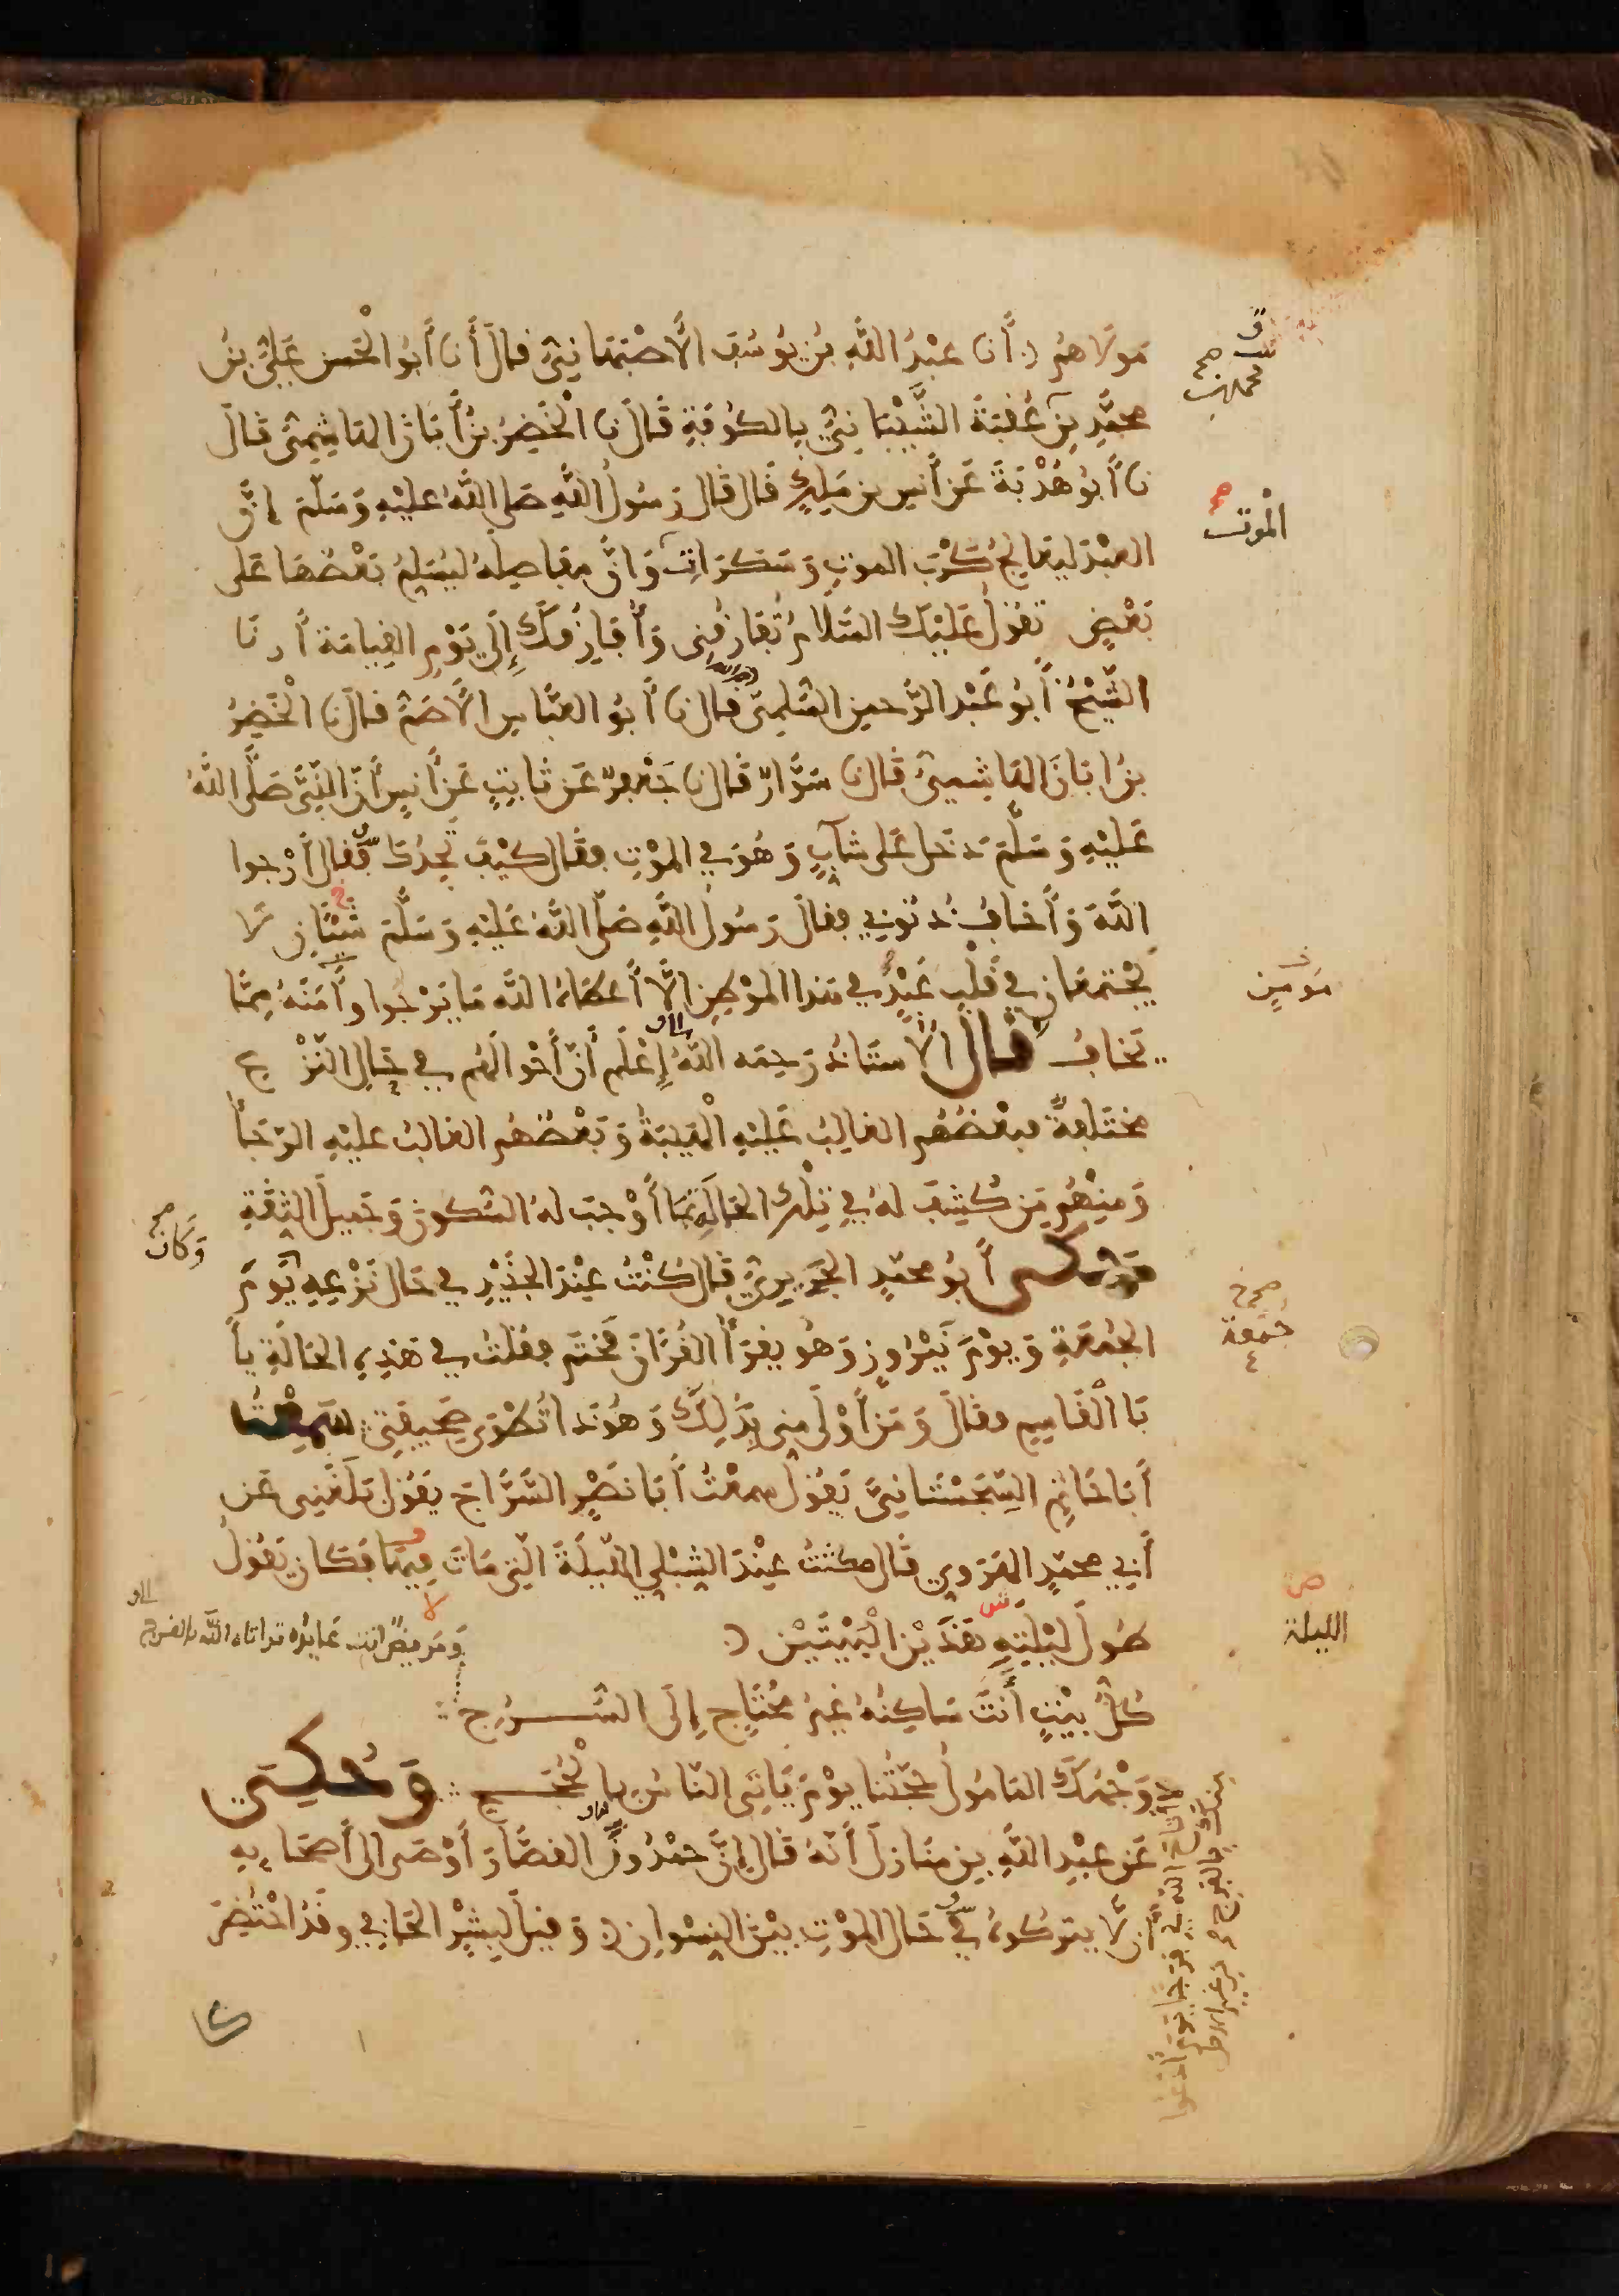 مَوْلَاهُمْ أَنَا عَبْدُ اللَّهِ بْنُ يُوسُفَ الْأَصْبَهَانِيُّ قَالَ أَنَا أَبُو الْحَسَنِ عَلِيُّ بْنُ
مُحَمَّدِ بْنِ عُقْبَةَ الشَّيْبَانِيُّ بِالْكُوفَةِ قَالَ نَا الْخَضِرُ بْنُ أَبَانَ الْهَاشِمِيُّ قَالَ
نَا أَبُو هُدْبَةَ عَنْ أَنَسِ بْنِ مَلِكٍ قَالَ قَالَ رَسُولُ اللَّهِ صَلَى اللَّهُ عَلَيْهِ وَسَلَّمَ إِنَّ
الْعَبْدَ لَيُعَالِجُ كَرْبَ الْمَوْتِ وَسَكَرَاتِ وَإِنَّ مَفَاصِلَهُ لَيُسَلِّمُ بَعْضُهَا عَلَى
بَعْضٍ تَقُولُ عَلَيْكَ السَّلَامُ تُفَارِقُنِي وَأُفَارِقُكَ إِلَى يَوْمِ الْقِيَامَةِ أرنَا
الشَّيْخُ أَبُو عَبْدِ الرَّحْمٰنِ السُّلَمِيُّ قَالَ نَا أَبُو الْعَبَّاسِ الْأَصَمُّ قَالَ نَا الْخَضِرُ
بْنُ ابَانَ الْهَاشِمِيُّ قَالَ نَا سَوَّارٌ قَالَ نَا جَعْفَرٌ عَنْ ثَابِتٍ عَنْ أَنَسٍ أَنَّ النَّبِيَّ صَلَّى اللَّهُ
عَلَيْهِ وَسَلَّمَ دَخَلَ عَلَى شَابٍّ وَهُوَ فِي الْمَوْتِ فَقَالَ كَيْفَ تَجِدُكَ فَقَالَ أَرْجُوا
اللَّهَ وَأَخَافُ ذُنُوبِي فَقَالَ رَسُولُ اللَّهِ صَلَّى اللَّهُ عَلَيْهِ وَسَلَّمَ شَيْئَانِ لَا
يَجْتَمِعَانِ فِي قَلْبِ عَبْدٍ فِي هَذَا الْمَوْطِنِ إِلَّا أَعْطَاهُ اللَّهُ مَا يَرْجُوا وَأَمَّنَهُ مِمَّا
يَخَافُ قَالَ الْأُسْتَاذُ رَحِمَهُ اللَّهُ إِعْلَمْ أَنَّ أَحْوَالَهُمْ فِي حَالِ النَّزْعِ
مُخْتَلِفَةٌ فَبَعْضُهُمْ الْغَالِبُ عَلَيْهِ الْهَيْبَةُ وَبَعْضُهُمْ الْغَالِبُ عَلَيْهِ الرَّجَاءُ
وَمِنْهُمْ مَنْ كُشِفَ لَهُ فِي تِلْكَ الْحَالَةِ مَا أَوْجَبَ لَهُ السُّكُونَ وَجَمِيلَ الثِّقَةِ
حَكَى أَبُو مُحَمَّدٍ الْجُرَيْرِيُّ قَالَ كُنْتُ عِنْدَ الْجُنَيْدِ فِي حَالِ نَزْعِهِ يَوْمَ
الْجُمُعَةِ وَيَوْمَ نَيْرُوزٍ وَهُوَ يَقْرَأُ الْقُرْءَانَ فَخَتَمَ فَقُلْتُ فِي هَذِهِ الْحَالَةِ يَا أَ
بَا الْقَاسِمِ فَقَالَ وَمَنْ أَوْلَى مِنِّي بِذَلِكَ وَهُوَذَا تُطْوَى صَحِيفَتِي سَمِعْتُ
أَبَا حَاتِمٍ السِّجِسْتَانِيَّ يَقُولُ سَمِعْتُ أَبَا نَصْرٍ السَّرَّاجَ يَقُولُ بَلَغَنِي عَنْ
أَبِي مُحَمَّدٍ الْهَرَوِيِّ قَالَ مَكَثْتُ عِنْدَ الشِّبْلِي اللَّيْلَةَ الَّتِي مَاتَ فِيهَا فَكَانَ يَقُولُ
طُولَ لَيْلَتِهِ هَذَيْنِ الْبَيْتَيْنِ
كُلُّ بَيْتٍ أَنْتَ سَاكِنُهُ غَيْرُ مُحْتَاجٍ إِلَى السُّرُجِ
وَجْهُكَ الْمَأْمُولُ حُجَّتُنَا يَوْمَ يَأْتِي النَّاسُ بِالْحُجَجِ وَحُكِيَ
عَنْ عَبْدِ اللَّهِ بْنِ مَنَازِلَ أَنَّهُ قَالَ إِنَّ حَمْدُونَ الْقَصَّارَ أَوْصَى إِلَى أَصْحَابِهِ
أَنْ لَا يَتْرُكُوهُ فِي حَالِ الْمَوْتِ بَيْنَ النِّسْوَانِ وَقِيلَ لِبِشْرٍ الْحَافِي وَقَدْ احْتُضِرَ
الْمَوْت
مُومِنٍ
وَكَانَ
جُمُعَة
الليلة
وَمَرِيضٌ أَنْتَ عَايِدُهُ قَدْ أَتَاهُ اللَّهُ بِالْفَرَجِ
لا أَتَاحَ اللَّهُ لِي فَرَجًا يَوْمَ أَدْعُوا
مِنْكَ بِالْفَرَجِ